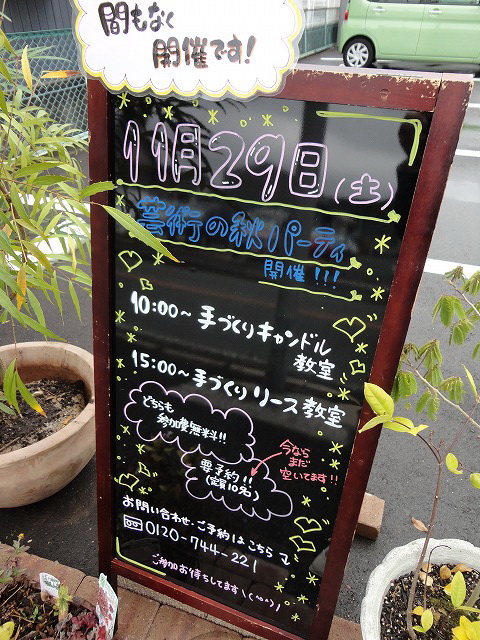 間もなく
開催です!
11月29日(土)
芸術の秋パーティ
開催!!!
10:00~手づくりキャンドル
教室
15:00~手づくりリース教室
どちらも
参加費無料!!
要予約!!
(定員10名)
今なら
まだ
空いてます!!
お問い合わせ・ご予約はこちら
0120-744-221
ご参加お待ちしてます\(^o^)/